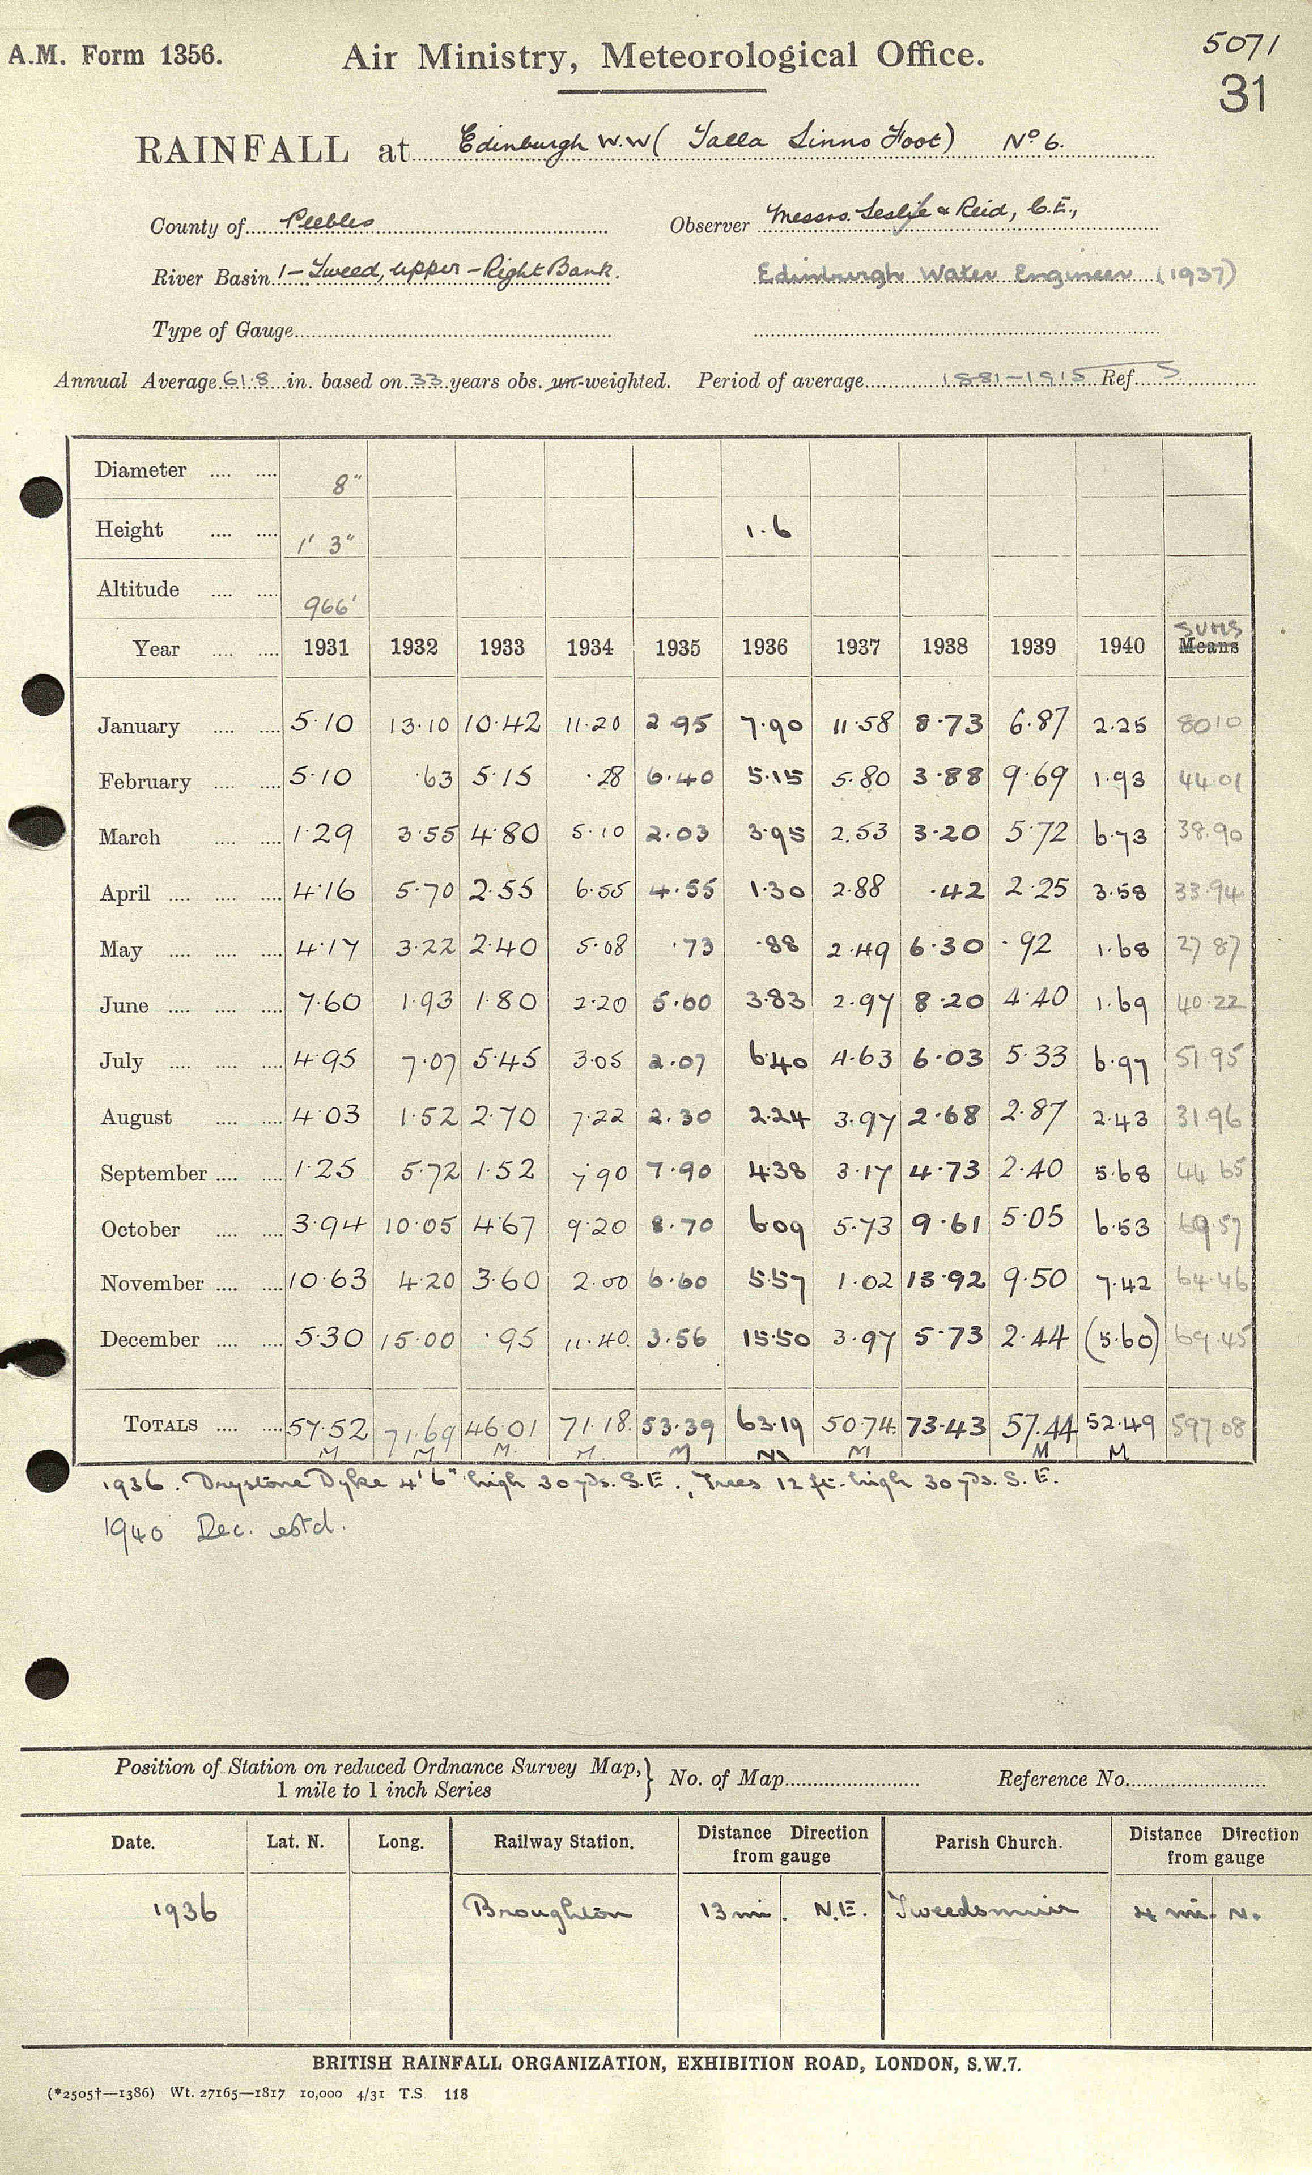 A.M. Form 1356.
Air Ministry, Meteorological Office.
5071
31
RAINFALL at Edinburgh W.W (Talla Linns Foot) No 6.
County of Peebles Observer Messrs. Leslie & Reid, C.E.,
River Basin 1 – Tweed, upper – Right Bank. Edinburgh Water Engineer (1937)
Type of Gauge
Annual Average 61.8 in. based on 33 years obs. un-weighted. Period of average 1881–1915 Ref 5
Diameter 8"
Height 1' 3" 1.6
Altitude 966'
Year 1931 1932 1933 1934 1935 1936 1937 1938 1939 1940 Sums Means
January 5.10 13.10 10.42 11.20 2.95 7.90 11.58 8.73 6.87 2.25 80 10
February 5.10 .63 5.15 .28 6.40 5.15 5.80 3.88 9.69 1.93 44 01
March 1.29 3.55 4.80 5.10 2.03 3.95 2.53 3.20 5.72 6.73 38.90
April 4.16 5.70 2.55 6.55 4.55 1.30 2.88 .42 2.25 3.58 33.94
May 4.17 3.22 2.40 5.08 .73 .88 2.49 6.30 .92 1.68 27 87
June 7.60 1.93 1.80 2.20 5.60 3.83 2.97 8.20 4.40 1.69 40.22
July 4.95 7.07 5.45 3.05 2.07 6.40 4.63 6.03 5.33 6.97 51 95
August 4.03 1.52 2.70 7.22 2.30 2.24 3.97 2.68 2.87 2.43 31 96
September 1.25 5.72 1.52 7.90 7.90 4.38 3.17 4.73 2.40 5.68 44 65
October 3.94 10.05 4.67 9.20 8.70 6.09 5.73 9.61 5.05 6.53 69 57
November 10.63 4.20 3.60 2.00 6.60 5.57 1.02 13.92 9.50 7.42 64.46
December 5.30 15.00 .95 11.40 3.56 15.50 3.97 5.73 2.44 (5.60) 69.45
TOTALS 57.52 71.69 46.01 71.18 53.39 63.19 50.74 73.43 57.44 52.49 597 08
M M M M M M M M M
1936. Drystone Dyke 4'6" high 30 yds. S.E., Trees 12 ft. high 30 yds. S.E.
1940 Dec. estd.
Position of Station on reduced Ordnance Survey Map, 1 mile to 1 inch Series } No. of Map Reference No.
Date. Lat. N. Long. Railway Station. Distance Direction from gauge Parish Church. Distance Direction from gauge
1936 Broughton 13 mi. N.E. Tweedsmuir 4 mi. N.
BRITISH RAINFALL ORGANIZATION, EXHIBITION ROAD, LONDON, S.W.7.
(*2505†—1386) Wt. 27165—1817 10,000 4/31 T.S. 118